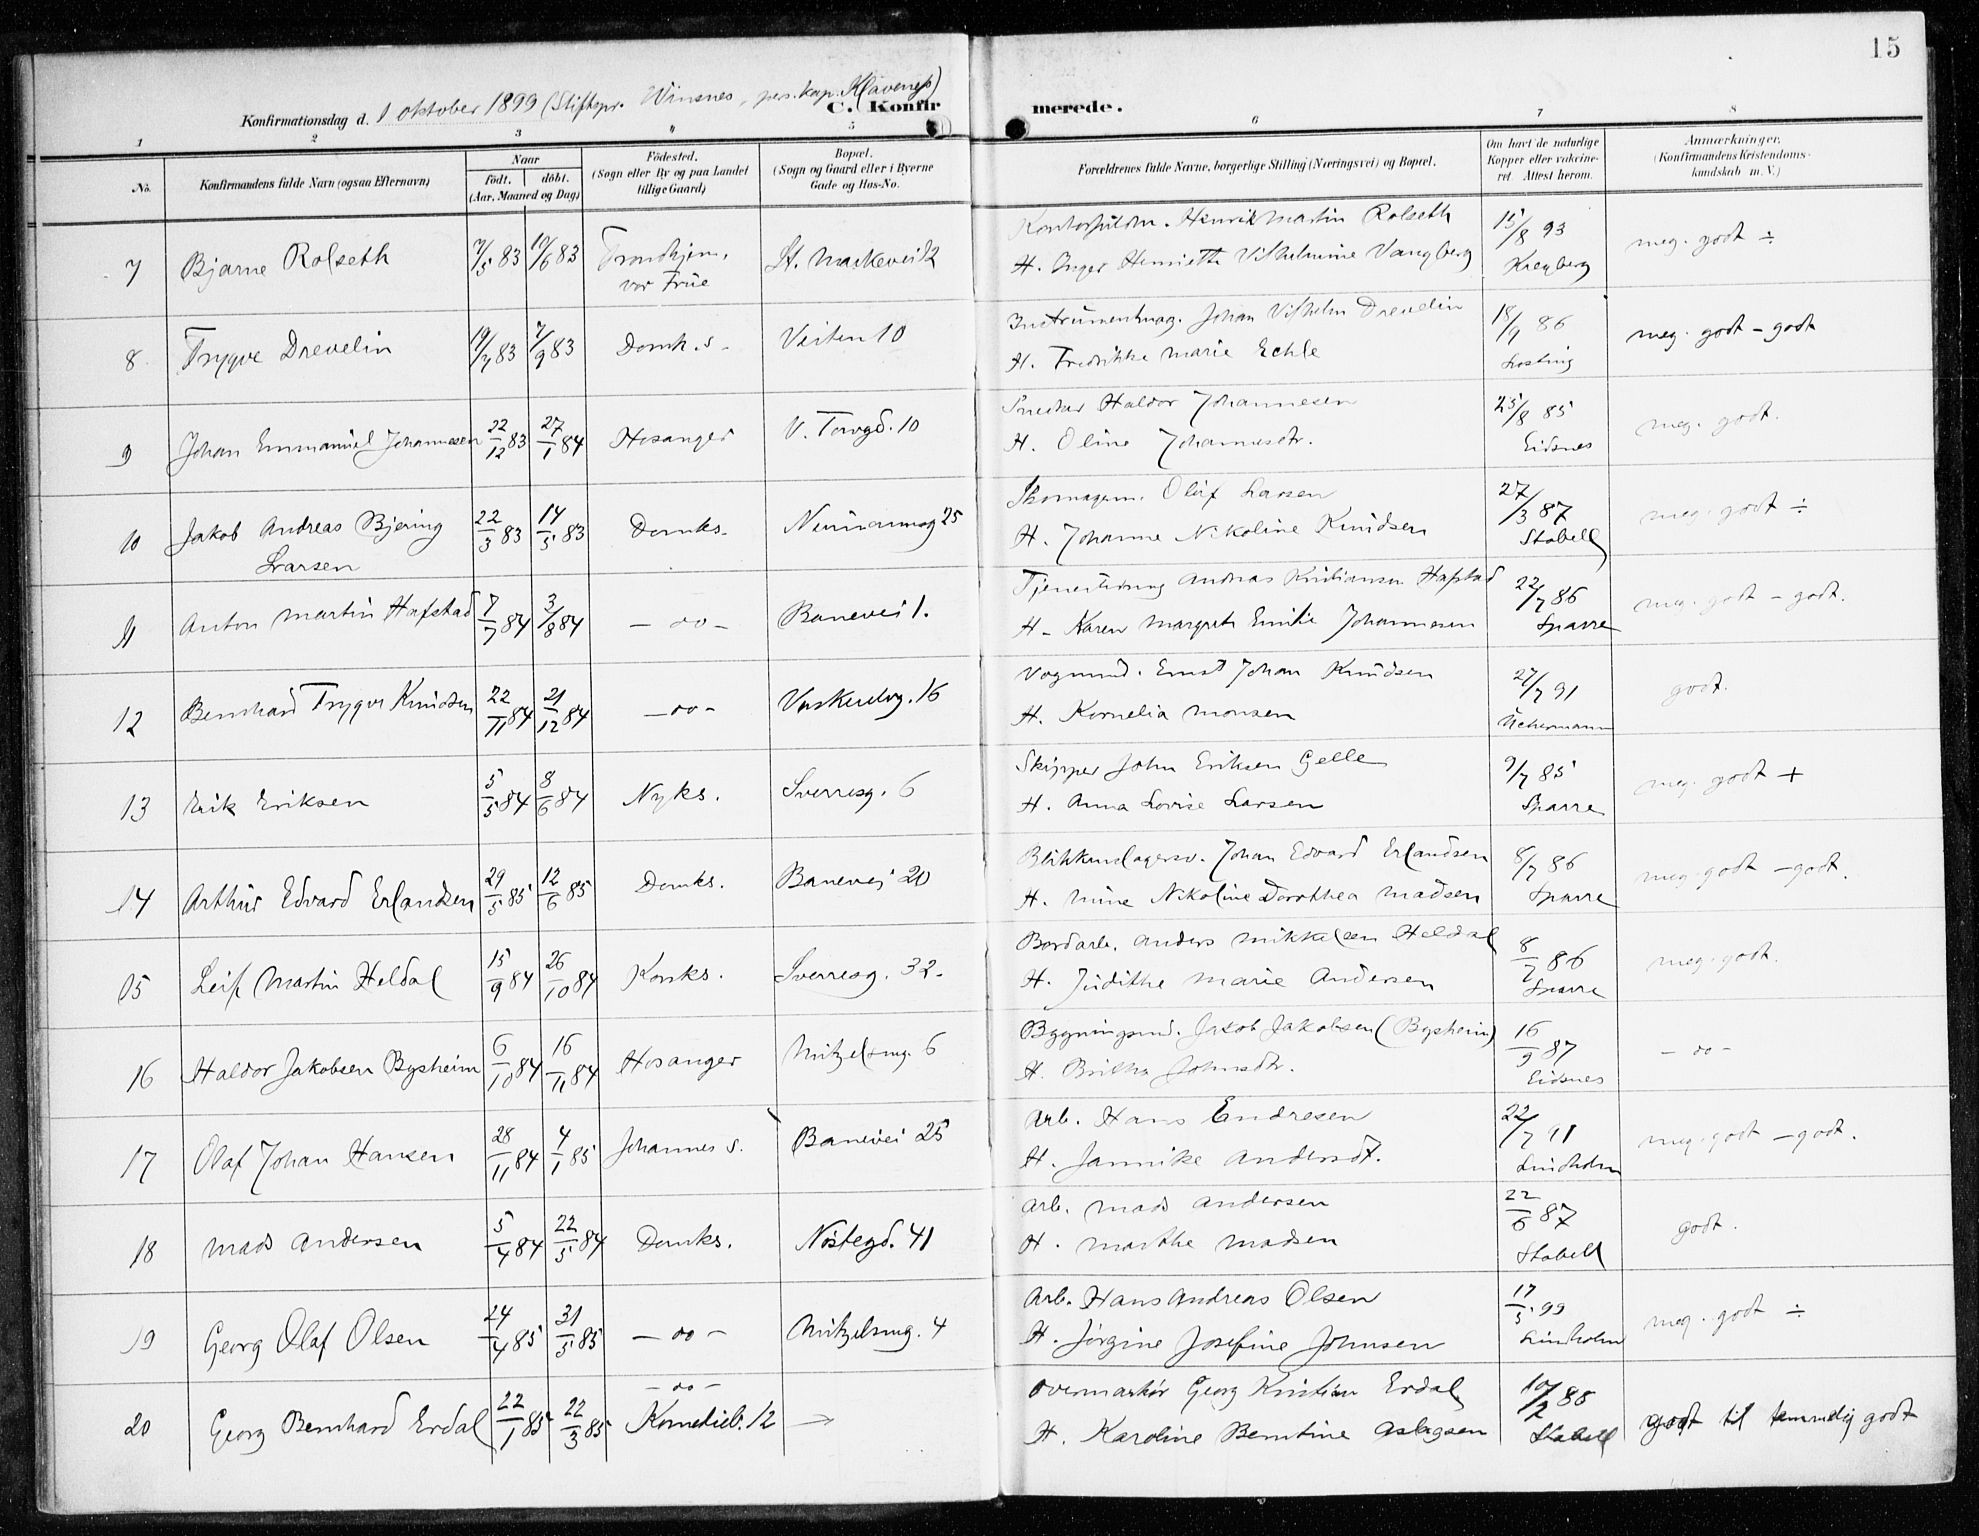 15
Konfirmationsdag d. 1 oktober 1899 (Stiftspr. Winsnes, pers. kap. Klavenes)
C. Konfirmerede.
1 2 3 4 5 6 7 8
No. Konfirmandens fulde Navn (ogsaa Efternavn) Naar født. døbt. (Aar, Maaned og Dag) Fødested. (Sogn eller By og paa Landet tillige Gaard) Bopæl. (Sogn og Gaard eller i Byerne Gade og Hus-No. Forældrenes fulde Navne, borgerlige Stilling (Næringsvei) og Bopæl. Om havt de naturlige Kopper eller vakcineret. Attest herom. Anmærkninger. (Konfirmandens Kristendomskundskab m. V.)
7 Bjarne Rolseth 7/5 83 10/6 83 Trondhjem, vor Frue St. Markevei 12 Henrik Martin Rolseth 15/8 93 meg. godt ÷
H. Inger Henriette Vilhelmine Vangberg
8 Trygve Drevelin 19/7 83 7/9 83 Domk.s. Veiten 10 Instrumentmag. Johan Vilhelm Drevelin 18/9 86 meg. godt - godt
H. Fredrikke Marie Echle Losting
9 Johan Emmanuel Johannesen 22/12 83 27/1 84 Hosanger V. Torvgd. 10 Snedker Haldor Johannesen 25/8 85 meg. godt.
H. Oline Johannesdtr. Eidsnes
10 Jakob Andreas Bjering Larsen 22/3 83 14/5 83 Domks. Neumannsg 25 Skomagerm. Oluf Larsen 27/3 87 meg. godt ÷
H. Johanne Nikoline Knudsen Stabell
11 Anton Martin Hafstad 7/7 84 3/8 84 - do - Banevei 1. Andreas Kristiansen Hafstad 22/7 86 meg. godt - godt.
H. Karen Margrete Emilie Johannesen Sparre
12 Bernhard Trygve Knudsen 22/11 84 21/12 84 - do - Vaskerelvg. 16 Vognmd. Ernst Johan Knudsen 27/7 91 godt.
H. Kornelia Monsen Uchermann
13 Erik Eriksen 5/5 84 8/6 84 Nyks. Sverresg. 6 Skipper John Eriksen Gelle 9/7 85 meg. godt +
H. Anna Lovise Larsen Sparre
14 Arthur Edvard Erlandsen 29/5 85 12/6 85 Domks. Banevei 20 Johan Edvard Erlandsen 8/7 86 meg. godt - godt.
H. Mine Nikoline Dorothea Madsen Sparre
15 Leif Martin Heldal 15/9 84 26/10 84 Korsks. Sverresg. 32. Bordarb. Anders Mikkelsen Heldal 8/7 86 meg. godt.
H. Judithe Marie Andersen Sparre
16 Haldor Jakobsen Bysheim 6/10 84 16/11 84 Hosanger Nitzelsmg. 6 Bygningsmd. Jakob Jakobsen (Bysheim) 16/9 87 - do -
H. Britha Johnsdtr. Eidsnes
17 Olaf Johan Hansen 28/11 84 4/1 85 Johannes s. Banevei 25 Arb. Hans Endresen 22/7 91 meg. godt - godt.
H. Jannike Andersdt. Lindholm
18 Mads Andersen 5/4 84 22/5 84 Domks. Nøstegd. 41 Arb. Mads Andersen 22/6 87 godt.
H. Marthe Madsen Stabell
19 Georg Olaf Olsen 24/4 85 31/5 85 - do - Nitzelsmg. 4 Arb. Hans Andreas Olsen 17/5 99 meg. godt ÷
H. Jørgine Josefine Johnsen Lindholm
20 Georg Bernhard Erdal 22/1 85 22/3 85 - do - Komedieb. 12 Overmarkør Georg Kristian Erdal 10/2 88 godt til temmelig godt
H. Karoline Berntine Aslagsen Stabell